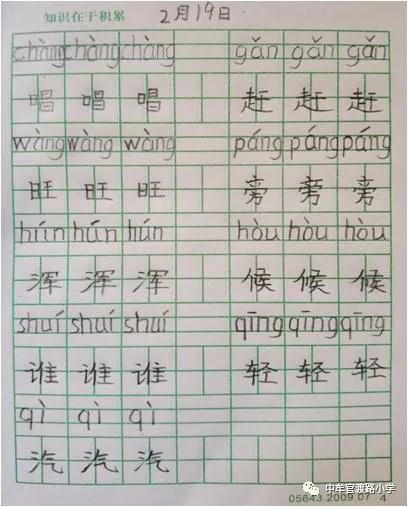 知识在于积累 2月19日
chàng chàng chàng gǎn gǎn gǎn
唱 唱 唱 赶 赶 赶
wàng wàng wàng páng páng páng
旺 旺 旺 旁 旁 旁
hún hún hún hòu hòu hòu
浑 浑 浑 候 候 候
shuí shuí shuí qīng qīng qīng
谁 谁 谁 轻 轻 轻
qì qì qì
汽 汽 汽
中车官渡路小学
05643.2009.07 4